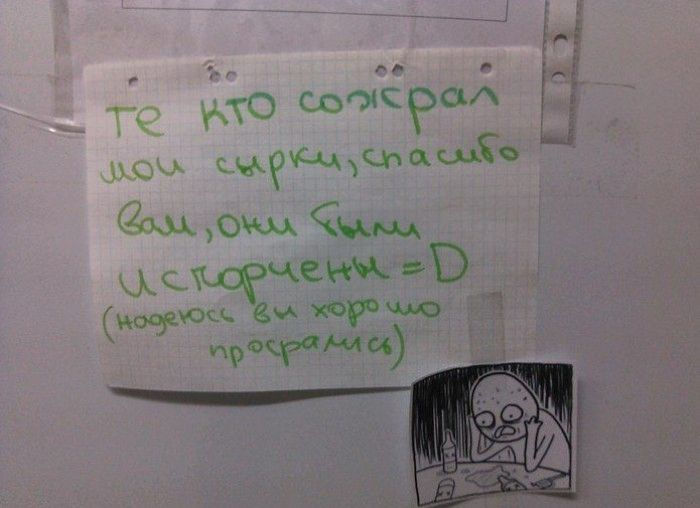 те кто сожрал
мои сырки, спасибо
вам, они были
испорчены =D
(надеюсь вы хорошо
просрались)